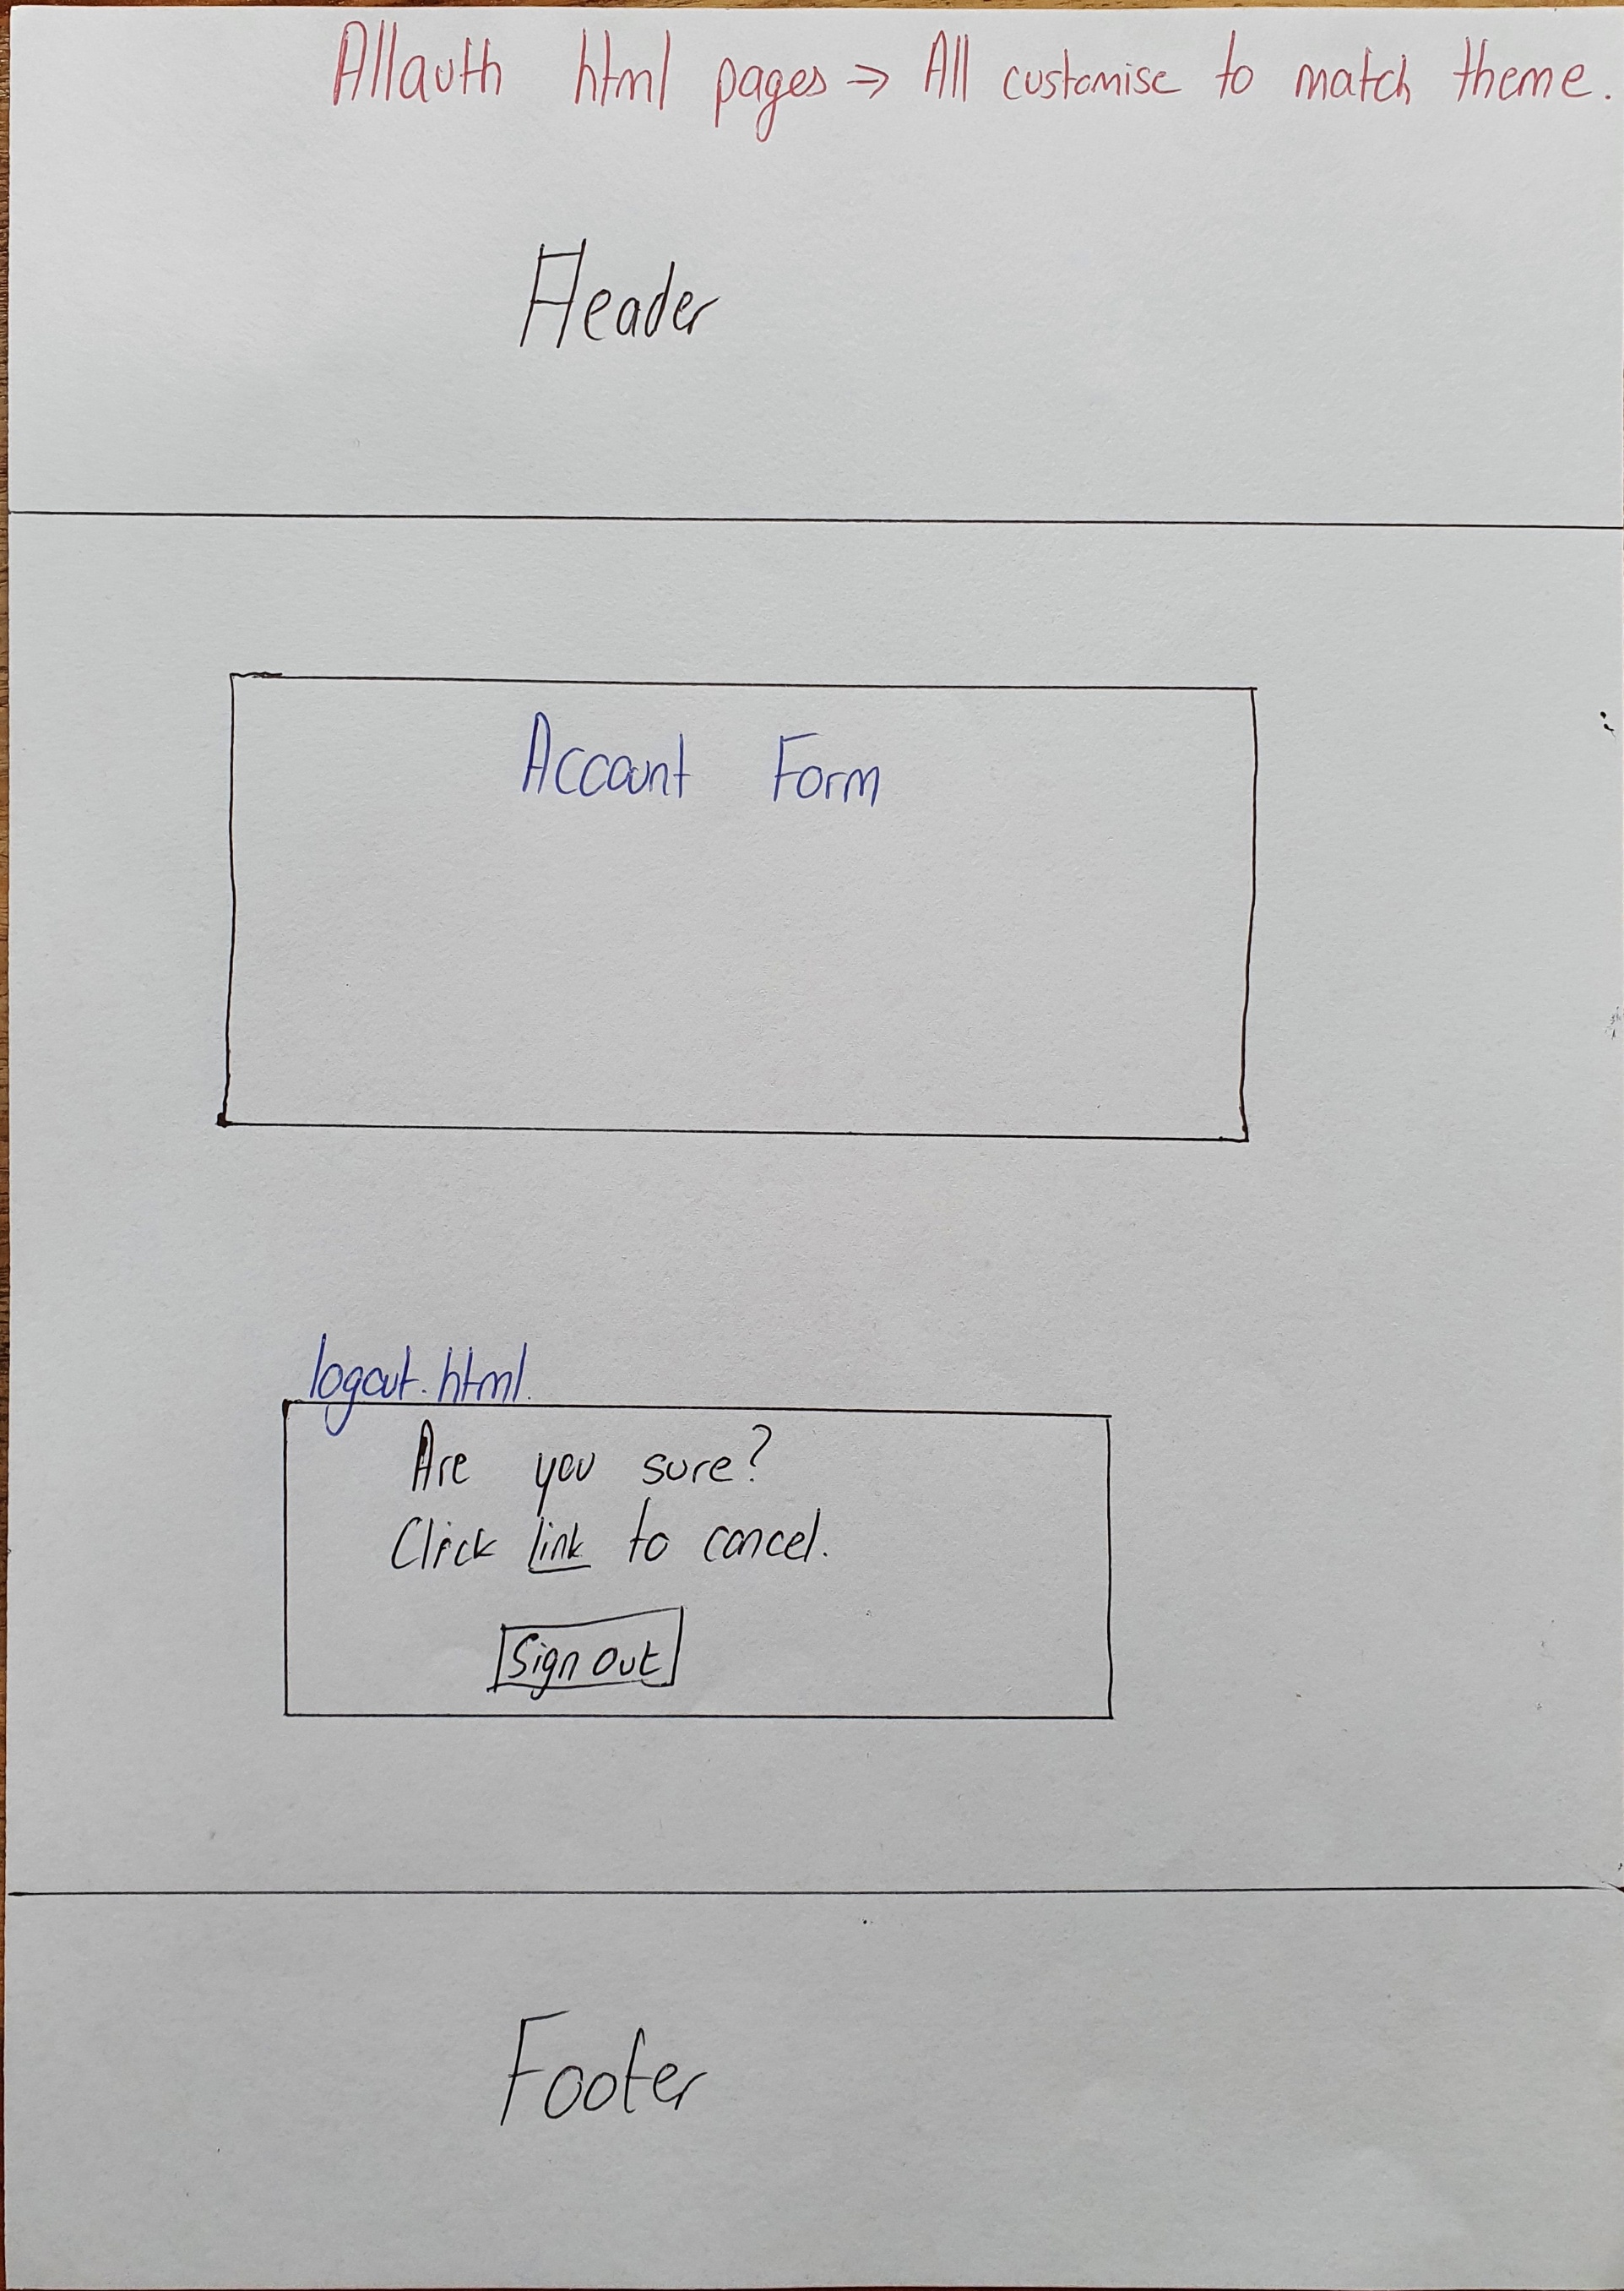 Allauth html pages => All customise to match theme.
Header
Account Form
logout.html.
Are you sure?
Click link to cancel.
Sign Out
Footer